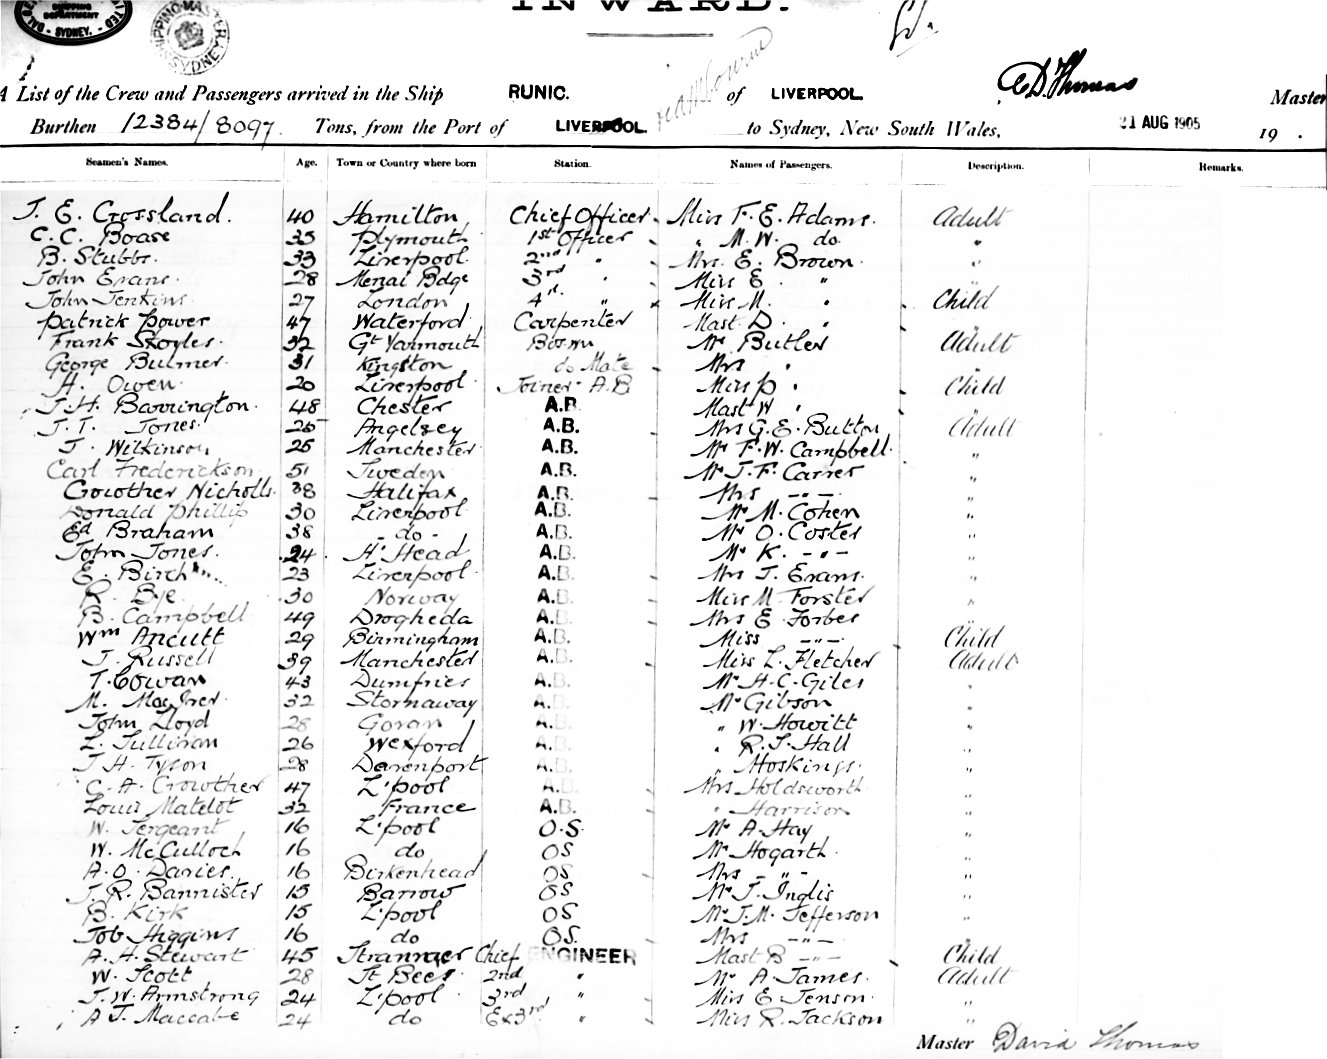 INWARD.
SHIPPING DEPARTMENT
SYDNEY.
SHIPPING MASTER SYDNEY
A List of the Crew and Passengers arrived in the Ship RUNIC. of LIVERPOOL. D. Thomas Master
Burthen 12384/8097. Tons, from the Port of LIVERPOOL. via Melbourne to Sydney, New South Wales, 21 AUG 1905 19 .
Seamen's Names. Age. Town or Country where born Station. Names of Passengers. Description. Remarks.
J. E. Crossland. 40 Hamilton Chief Officer Miss F. E. Adams. Adult
C. C. Boase 35 Plymouth 1st Officer " M. W. do. "
B. Stubbs. 33 Liverpool 2nd " Mrs. E. Brown. "
John Evans. 28 Menai Bdge 3rd " Miss E. "
John Jenkins 27 London 4th " Miss M. " Child
Patrick Power 47 Waterford Carpenter Mast D. " "
Frank Skoyles. 32 Gt Yarmouth Boswn Mr Butler Adult
George Bulmer. 31 Kingston do Mate Mrs " "
H. Owen. 20 Liverpool Joiner A.B Miss P " Child
J. H. Barrington. 48 Chester A.B. Mast W " "
J. T. Jones. 25 Angelsey A.B. Mrs G. E. Button Adult
J. Wilkinson 25 Manchester A.B. Mr F. W. Campbell. "
Carl Frederickson 51 Sweden A.B. Mr J. F. Carrer "
Crowther Nicholls. 38 Halifax A.B. Mrs - " - "
Donald Phillip 30 Liverpool A.B. Mr M. Cohen "
Ed Braham 38 - do - A.B. Mr O. Coster "
John Jones. 24 H. Head A.B. Mr K. - " - "
E. Birch 23 Liverpool A.B. Mrs J. Evans. "
R. Bye. 30 Norway A.B. Miss M. Forster "
B. Campbell 49 Drogheda A.B. Mrs E Forbes "
Wm Ancutt 29 Birmingham A.B. Miss - " - Child
J. Russell 39 Manchester A.B. Miss L. Fletcher Adult
T. Cowan 43 Dumfries A.B. Mr H. C. Giles "
M. MacIver. 32 Stornaway A.B. Mr Gibson "
John Lloyd 28 Goran A.B. " W. Howitt "
L. Sullivan 26 Wexford A.B. " R. J. Hall "
J. H. Tyson 28 Davenport A.B. " Hoskings. "
C. A. Crowther 47 L'pool A.B. Mrs Holdsworth "
Louis Matelot 32 France A.B. " Harrison "
W. Sergeant 16 L'pool O.S. Mr A. Hay "
W. McCulloch 16 do OS Mr Hogarth. "
A. O. Davies. 16 Birkenhead OS Mrs - " - "
J. R. Bannister 15 Barrow OS Mr J. Inglis "
B. Kirk 15 L'pool OS Mr J. M. Jefferson "
Job Higgins 16 do OS. Mrs - " - "
A. H. Stewart 45 Stranraer Chief ENGINEER Mast B - " - Child
W. Scott 28 St Bees. 2nd " Mr A. James. Adult
J. W. Armstrong 24 L'pool 3rd " Miss E. Jenson. "
A J. Maccabe 24 do Ex3rd " Miss R. Jackson "
Master David Thomas